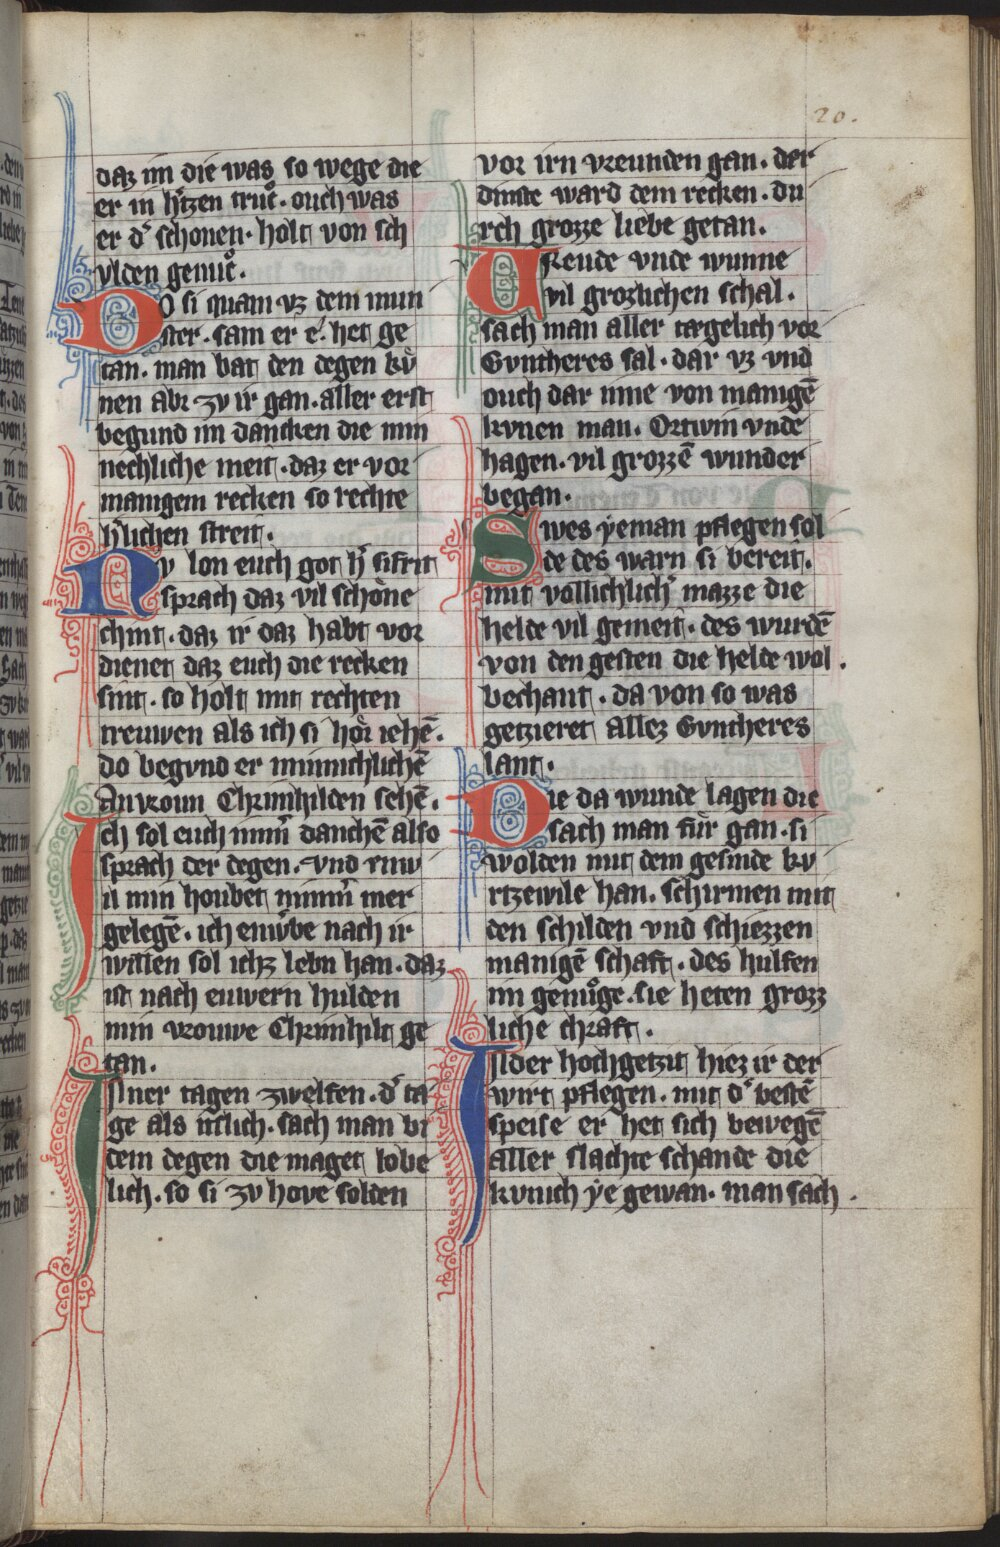 20.
daz im die was so wege die
er in h͛tzen truͦc. ouch was
er d͛ schonen. holt von sch
ulden genuͦc.
Do si quam vz dem mun
ster. sam er e. het ge
tan. man bat den degen kuͤ
nen abr zv ir gan. aller erst
begund im dancken die min
nechliche meit. daz er vor
manigem recken so rechte
h͛lichen streit.
Nv lon euch got h͛ sifrit
sprach daz vil schone
chint. daz ir daz habt vor
dienet daz euch die recken
sint. so holt mit rechten
treuwen als ich si hoͤr iehē.
do begvnd er minnichlichē
an vroun Chrimhilden sehē.
Ich sol euch imm͛ danchē also
sprach der degen. vnd enw
il min houbet nimm͛ mer
gelegē. ich enw͛be nach ir
willen sol ichz lebn han. daz
ist nach euwern hulden
min vrouwe Chrimhilt ge
tan.
Iner tagen zwelfen. d͛ ta
ge als itslich. sach man bi
dem degen die maget lobe
lich. so si zv hove solden
vor irn vreunden gan. der
dinste ward dem recken. du
rch grozze liebe getan.
Vreude vnde wunne
vil grozlichen schal.
sach man aller tægelich vor
Gvntheres sal. dar vz vnd
ouch dar inne von manigē
kvnen man. Ortwin vnde
hagen. vil grozzē wunder
began.
Swes yeman pflegen sol
de des warn si bereit.
mit vollichlich͛ mazze die
helde vil gemeit. des wurdē
von den gesten die helde wol
bechant. da von so was
getzieret allez Gvntheres
lant.
Die da wunde lagen die
sach man fuͤr gan. si
wolden mit dem gesinde kv
rtzewile han. schirmen mit
den schilden vnd schiezzen
manigē schaft. des hulfen
im genuͦge. sie heten grozz
liche chraft.
In der hochgetzit hiez ir der
wirt pflegen. mit d͛ bestē
speise er het sich bewegē
aller slachte schande die
kvnich ye gewan. man sach